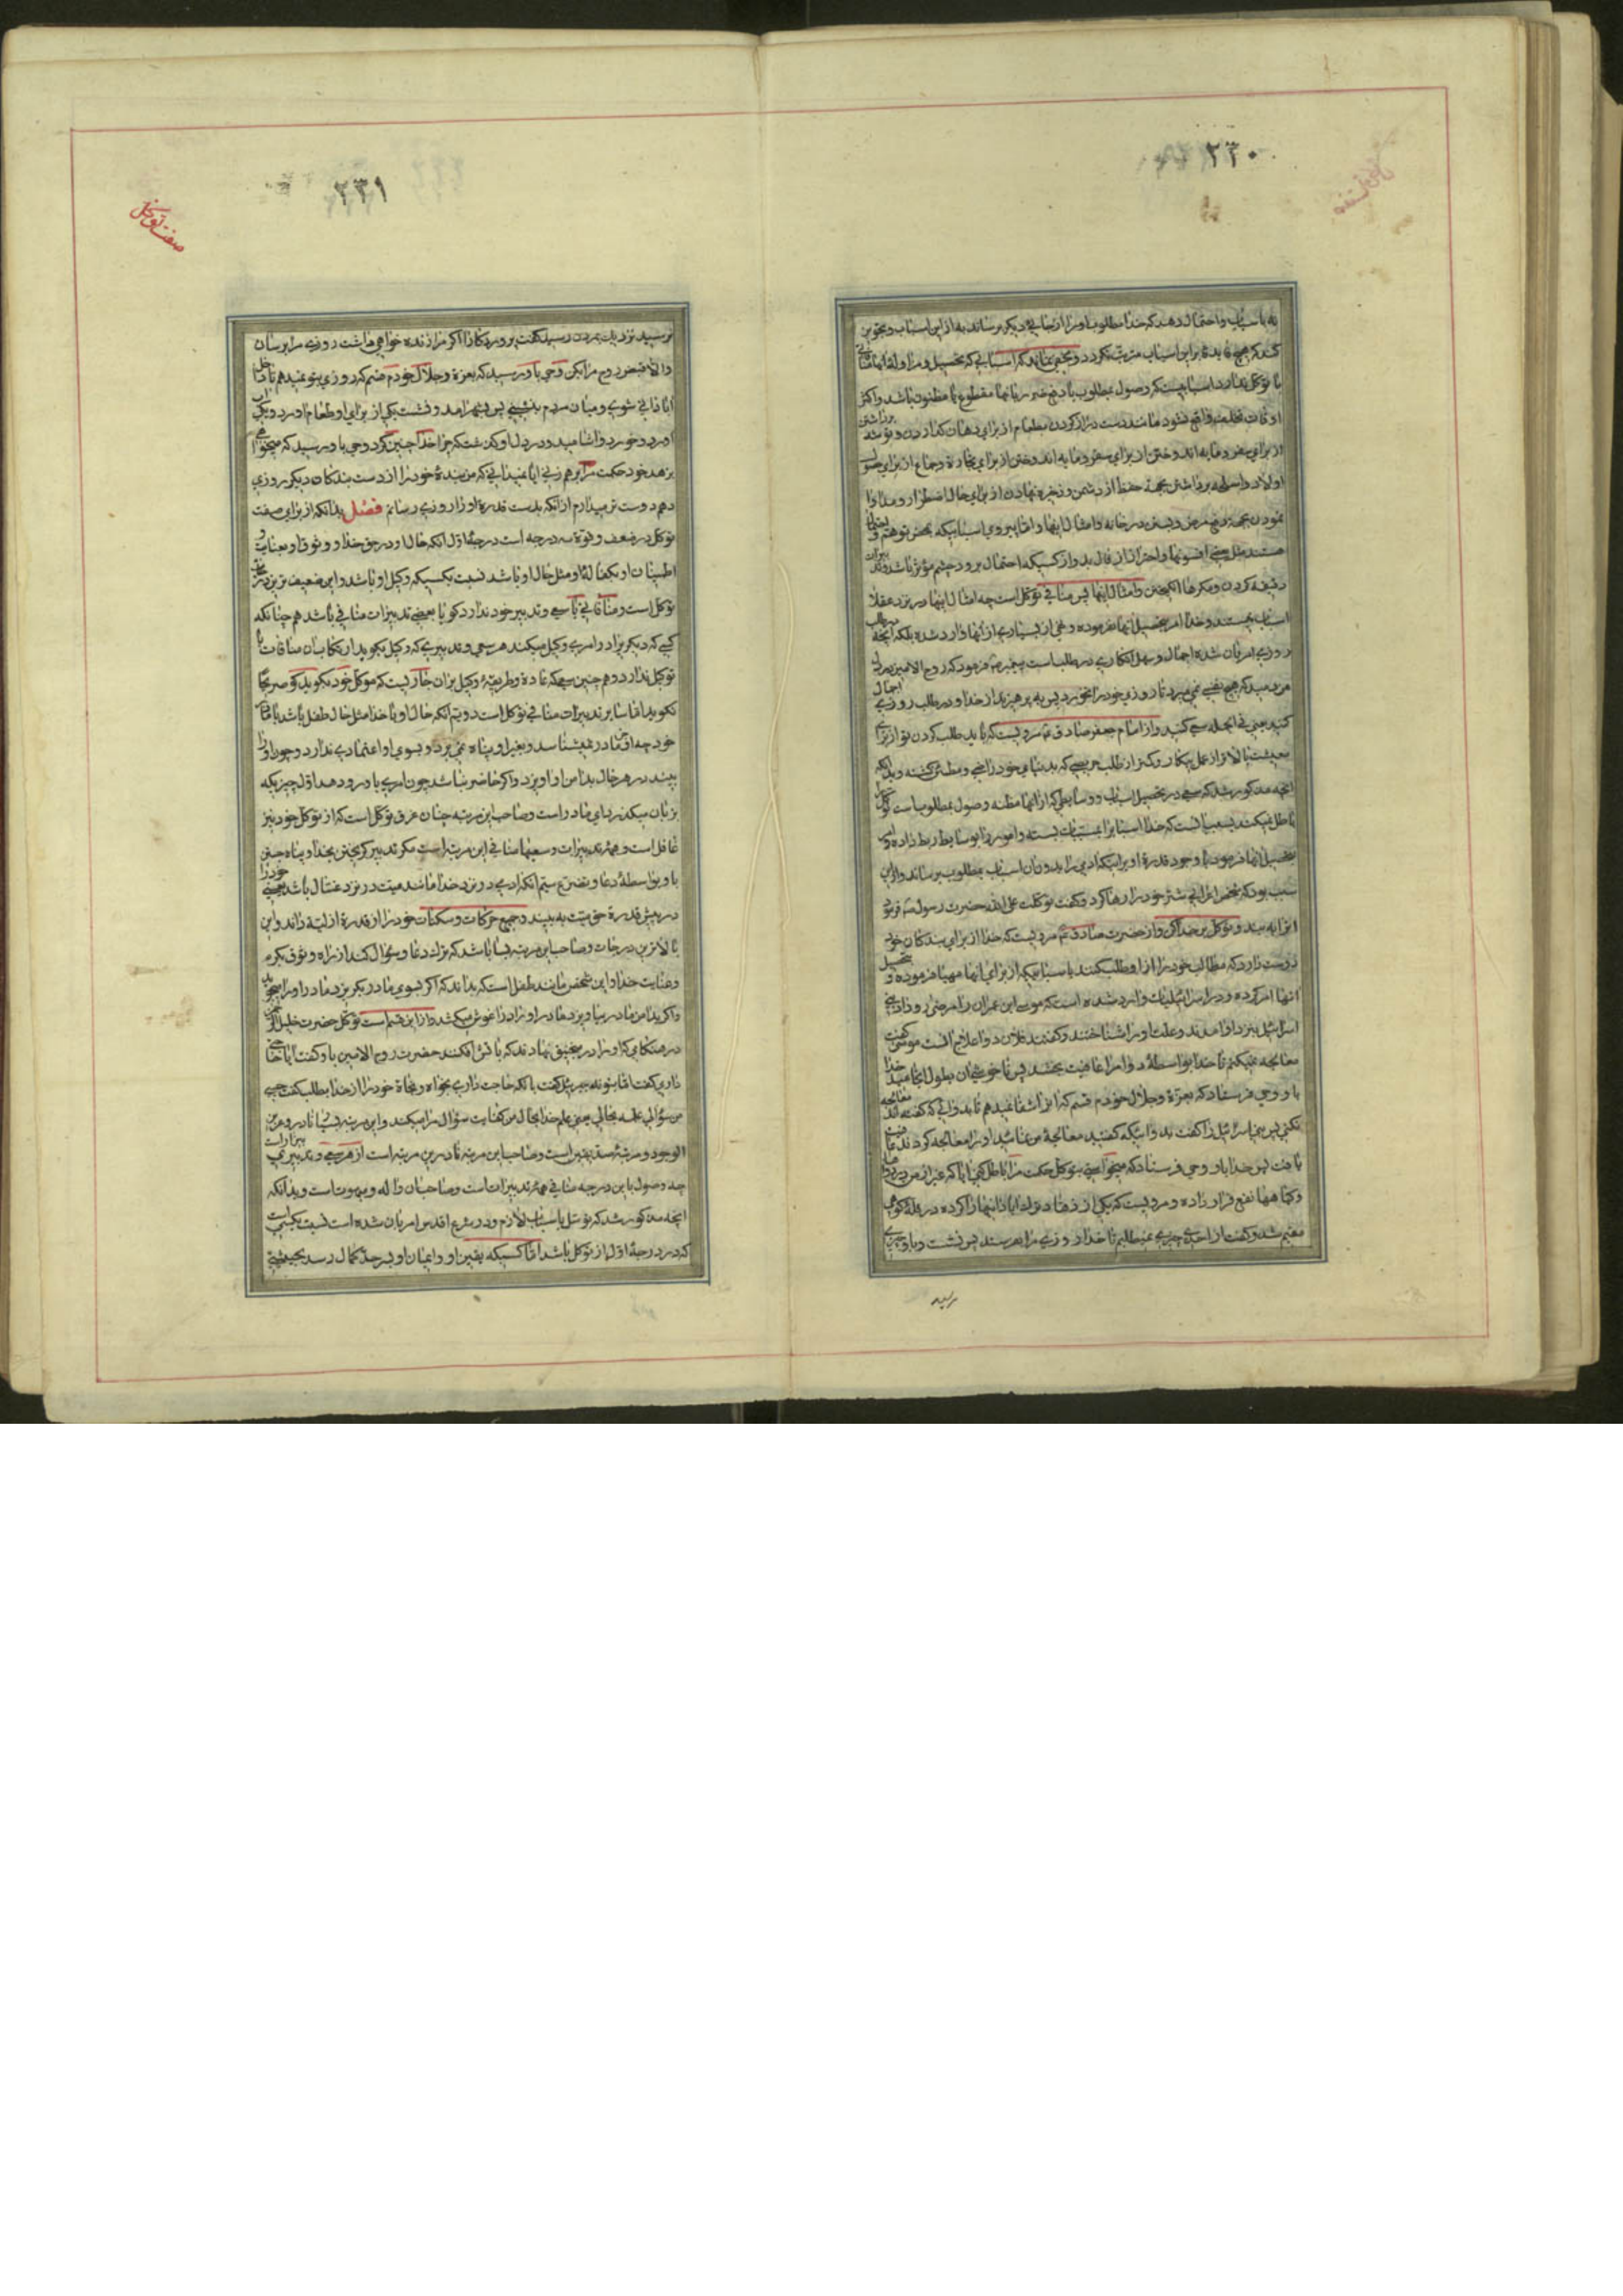 ۲۳۰
به باسباب و احتمال دهد که خدا مطلوب او را از جائی دیگر برساند به از این اسباب و تجویز
کند که هیچ فایده بر این اسباب مترتب نکردد و مخفی نماند که اسبابی که تحصیل و مزاوله انها منافی
با توکل ندارد اسبابیست که وصول بمطلوب یا دفع ضرر بانها مقطوع یا مظنون باشد و اکثر
اوقات تخلف واقع نشود مانند دست دراز کردن بطعام از برای دهان گذاردن و توشه برداشتن
از برای سفر و مایه اندوختن از برای تجارة و جماع از برای حصول
اولاد و اسلحه برداشتن بجهة حفظ از دشمن و ذخیره نهادن از برای حال اضطرار و مداوا
نمودن بجهة دفع مرض و بستن در خانه و امثال اینها و اما پیروی اسبابیکه بمحض توهم
هستند مثل بعضی افسونها و احتراز از فال بد و از کسیکه احتمال برود چشم مؤثر باشد و تدبیرات
دقیقه کردن و مکرها انکیختن و امثال اینها پس منافی توکل است چه امثال اینها در نزد عقلا
اسباب نیستند و خدا امر بتحصیل انها نفرموده و نهی از بسیاری از انها وارد شده بلکه انچه در طلب
روزی امر بان شده اجمال و سهل انکاری در طلب است پیغمبر ص فرمود که روح الامین در دل
من دمید که هیچ نفسی نمی میرد تا روزی خود را نخورد پس بپرهیزید از خدا و در طلب روزی اجمال
کنید یعنی فی الجمله سعی کنید و از امام جعفر صادق ع مرویست که باید طلب کردن تو از برای
معیشت بالاتر از عمل بیکار و کمتر از طلب حریصی که بدنیای خود راضی و مطمئن گشته و بدانکه
انچه مذکور شد که سعی در تحصیل اسباب و وسایطی که از انها مظنه وصول بمطلوب است توکل را
باطل نمیکند بسبب انست که خدا اسباب را بمسببات بسته و امور را بوسایط ربط داده و امر
بتحصیل انها فرموده با وجود قدرة او بر اینکه ادمی را بدون ان اسباب بمطلوب برساند و از این
سبب بود که شخص اعرابی شتر خود را رها کرد و گفت توکلت علی الله حضرت رسول ص فرمود
انرا به بند و توکل بر خدا کن و از حضرت صادق ع مرویست که خدا از برای بندکان خود
دوست دارد که مطالب خود را از او طلب کنند باسبابیکه از برای انها مهیا فرموده و بتحصیل
انها امر کرده و در اسرائیلیات وارد شده است که موسی ابن عمران را مرضی رو داد بنی
اسرائیل بنزد او امدند و علت او را شناختند و گفتند فلان دوا علاج انست موسی گفت
معالجه نمیکنم تا خدا بواسطه دوا مرا عافیت بخشد پس ناخوشی ان بطول انجامید خدا
باو وحی فرستاد که بعزة و جلال خودم قسم که انرا شفا نمیدهم تا بدوائی که گفته اند معالجه
نکنی پس بنی اسرائیل را گفت بدوائیکه گفتید معالجهٔ من نمائید او را معالجه کردند عافیت
یافت پس خدا باو وحی فرستاد که میخواستی بتوکل حکمت مرا باطل کنی ایا که غیر از من در دواها
و کیاهها نفع قرار داده و مرویست که یکی از زهاد ترک ابادانیها را کرده در قله کوهی
مقیم شد و گفت از احدی چیزی نمیطلبم تا خدا روزی مرا بمن رساند پس نشست و باو چیزی
نرسید
۲۳۱
صفت توکل
نرسید نزدیک بمردن رسید گفت پرورد کارا اگر مرا زنده خواهی داشت روزی مرا برسان
و الا قبض روح مرا بکن وحی باو رسید که بعزة و جلال خودم قسم که روزی بتو نمیدهم تا داخل
ابادانی شوی و میان مردم بنشینی پس بشهر امد و نشست یکی از برای او طعام اورد و یکی اب
اورد و خورد و اشامید و در دل او گذشت که چرا خدا چنین کرد وحی باو رسید که میخواهی
بزهد خود حکمت مرا برهم زنی ایا نمیدانی که من بندهٔ خود را از دست بندکان دیگر روزی
دهم دوست تر میدارم از انکه بدست قدرة او را روزی رسانم فصل بدانکه از برای صفت
توکل در ضعف و قوة سه درجه است درجهٔ اول انکه حال او در حق خدا و وثوق او بعنایت و
اطمینان او بکفالت او مثل حال او باشد نسبت بکسیکه وکیل او باشد و این ضعیف ترین درجات
توکل است و منافاتی با سعی و تدبیر خود ندارد کو یا بعضی تدبیرات منافی باشد همچنانکه
کسی که دیگری را در امری وکیل میکند هر سعی و تدبیری که وکیل بگوید ارتکاب ان منافات با
توکیل ندارد و همچنین سعی که عاده و طریقهٔ وکیل بر ان جاریست که موکل خود بکوید کو صریحا
نکوید اما سایر تدبیرات منافی توکل است دویم انکه حال او با خدا مثل حال طفل باشد با مادر
خود چه او جز مادر نمیشناسد و بغیر او پناه نمی برد و بسوی او اعتمادی ندارد و چون او را
بیند در هر حال بدامن او اویزد و اگر حاضر نباشد چون امری باو رو دهد اول چیزیکه
بزبان میگذرد یا مادر است و صاحب این مرتبه چنان غرق توکل است که از توکل خود نیز
غافل است و همه تدبیرات و سعیها منافی این مرتبه است مگر تدبیر گریختن بخدا و پناه جستن
باو بواسطهٔ دعا و تضرع سیم انکه ادمی در نزد خدا مانند میت در نزد غسال باشد یعنی خود را
در پیش قدرة حق میت به بیند و جمیع حرکات و سکنات خود را از قدرة ازلیه داند و این
بالاترین درجات و صاحب این مرتبه بسا باشد که ترک دعا و سؤال کند از راه وثوق بکرم
و عنایت خدا و این شخص مانند طفل است که بداند که اگر بسوی مادر نکریزد مادر او را میجوید
و اگر بدامن مادر نیاویزد مادر او را در اغوش میکشد و از این قسم است توکل حضرت خلیل الرحمن
در هنکامی که او را در منجنیق نهادند که باتش افکنند حضرت روح الامین باو گفت ایا حاجتی
داری گفت اما بتو نه جبرئیل گفت بانکه حاجت داری بخواه و نجاة خود را از خدا بطلب گفت حسبی
من سؤالی علمه بحالی یعنی علم خدا بحال من کفایت سؤال مرا میکند و این مرتبه بسیار نادر و عزیز
الوجود و مرتبهٔ صدیقین است و صاحب این مرتبه نادرین مرتبه است از هر سعی و تدبیری
چه وصول باین درجه منافی همه تدبیرات است و صاحبان واله و مبهوت است و بدانکه
انچه مذکور شد که توسل باسباب لازم و در شرع اقدس امر بان شده است نسبت بکسی است
که در درجهٔ اول از توکل باشد اما کسیکه یقین او و ایمان او بسر حد کمال رسد بحیثیتی